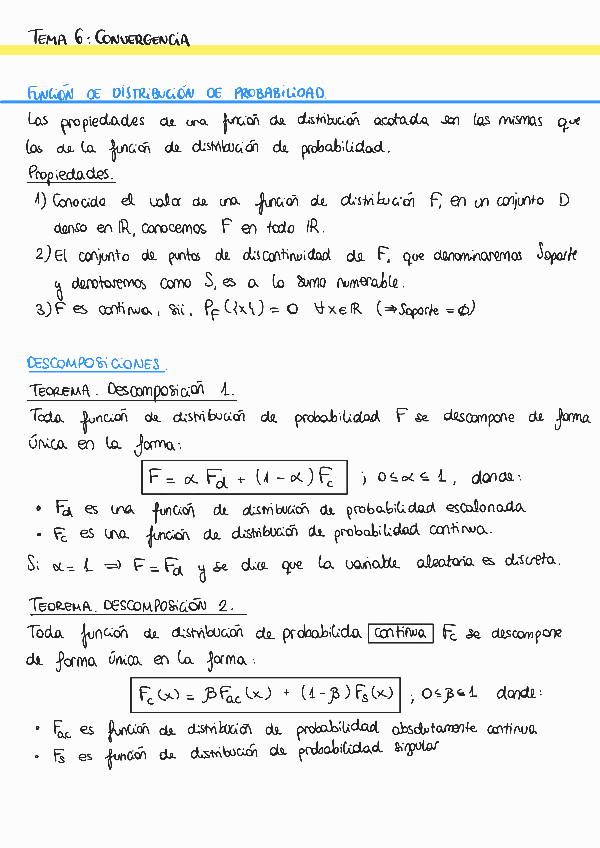 TEMA 6: CONVERGENCIA
FUNCIÓN DE DISTRIBUCIÓN DE PROBABILIDAD.
Las propiedades de una función de distribución acotada son las mismas que
las de la función de distribución de probabilidad.
Propiedades.
1) Conocido el valor de una función de distribución F, en un conjunto D
denso en ℝ, conocemos F en todo ℝ.
2) El conjunto de puntos de discontinuidad de F, que denominaremos Soporte
y denotaremos como S, es a lo sumo numerable.
3) F es continua, sii, P_F({x}) = 0 ∀x∈ℝ (⇒Soporte = ∅)
DESCOMPOSICIONES.
TEOREMA. Descomposición 1.
Toda función de distribución de probabilidad F se descompone de forma
única en la forma:
F = α F_d + (1-α) F_c ; 0≤α≤1, donde:
• F_d es una función de distribución de probabilidad escalonada
• F_c es una función de distribución de probabilidad continua.
Si α=1 ⇒ F=F_d y se dice que la variable aleatoria es discreta.
TEOREMA. DESCOMPOSICIÓN 2.
Toda función de distribución de probabilida continua F_c se descompone
de forma única en la forma:
F_c(x) = βF_ac(x) + (1-β)F_s(x) ; 0≤β≤1 donde:
• F_ac es función de distribución de probabilidad absolutamente continua
• F_s es función de distribución de probabilidad singular